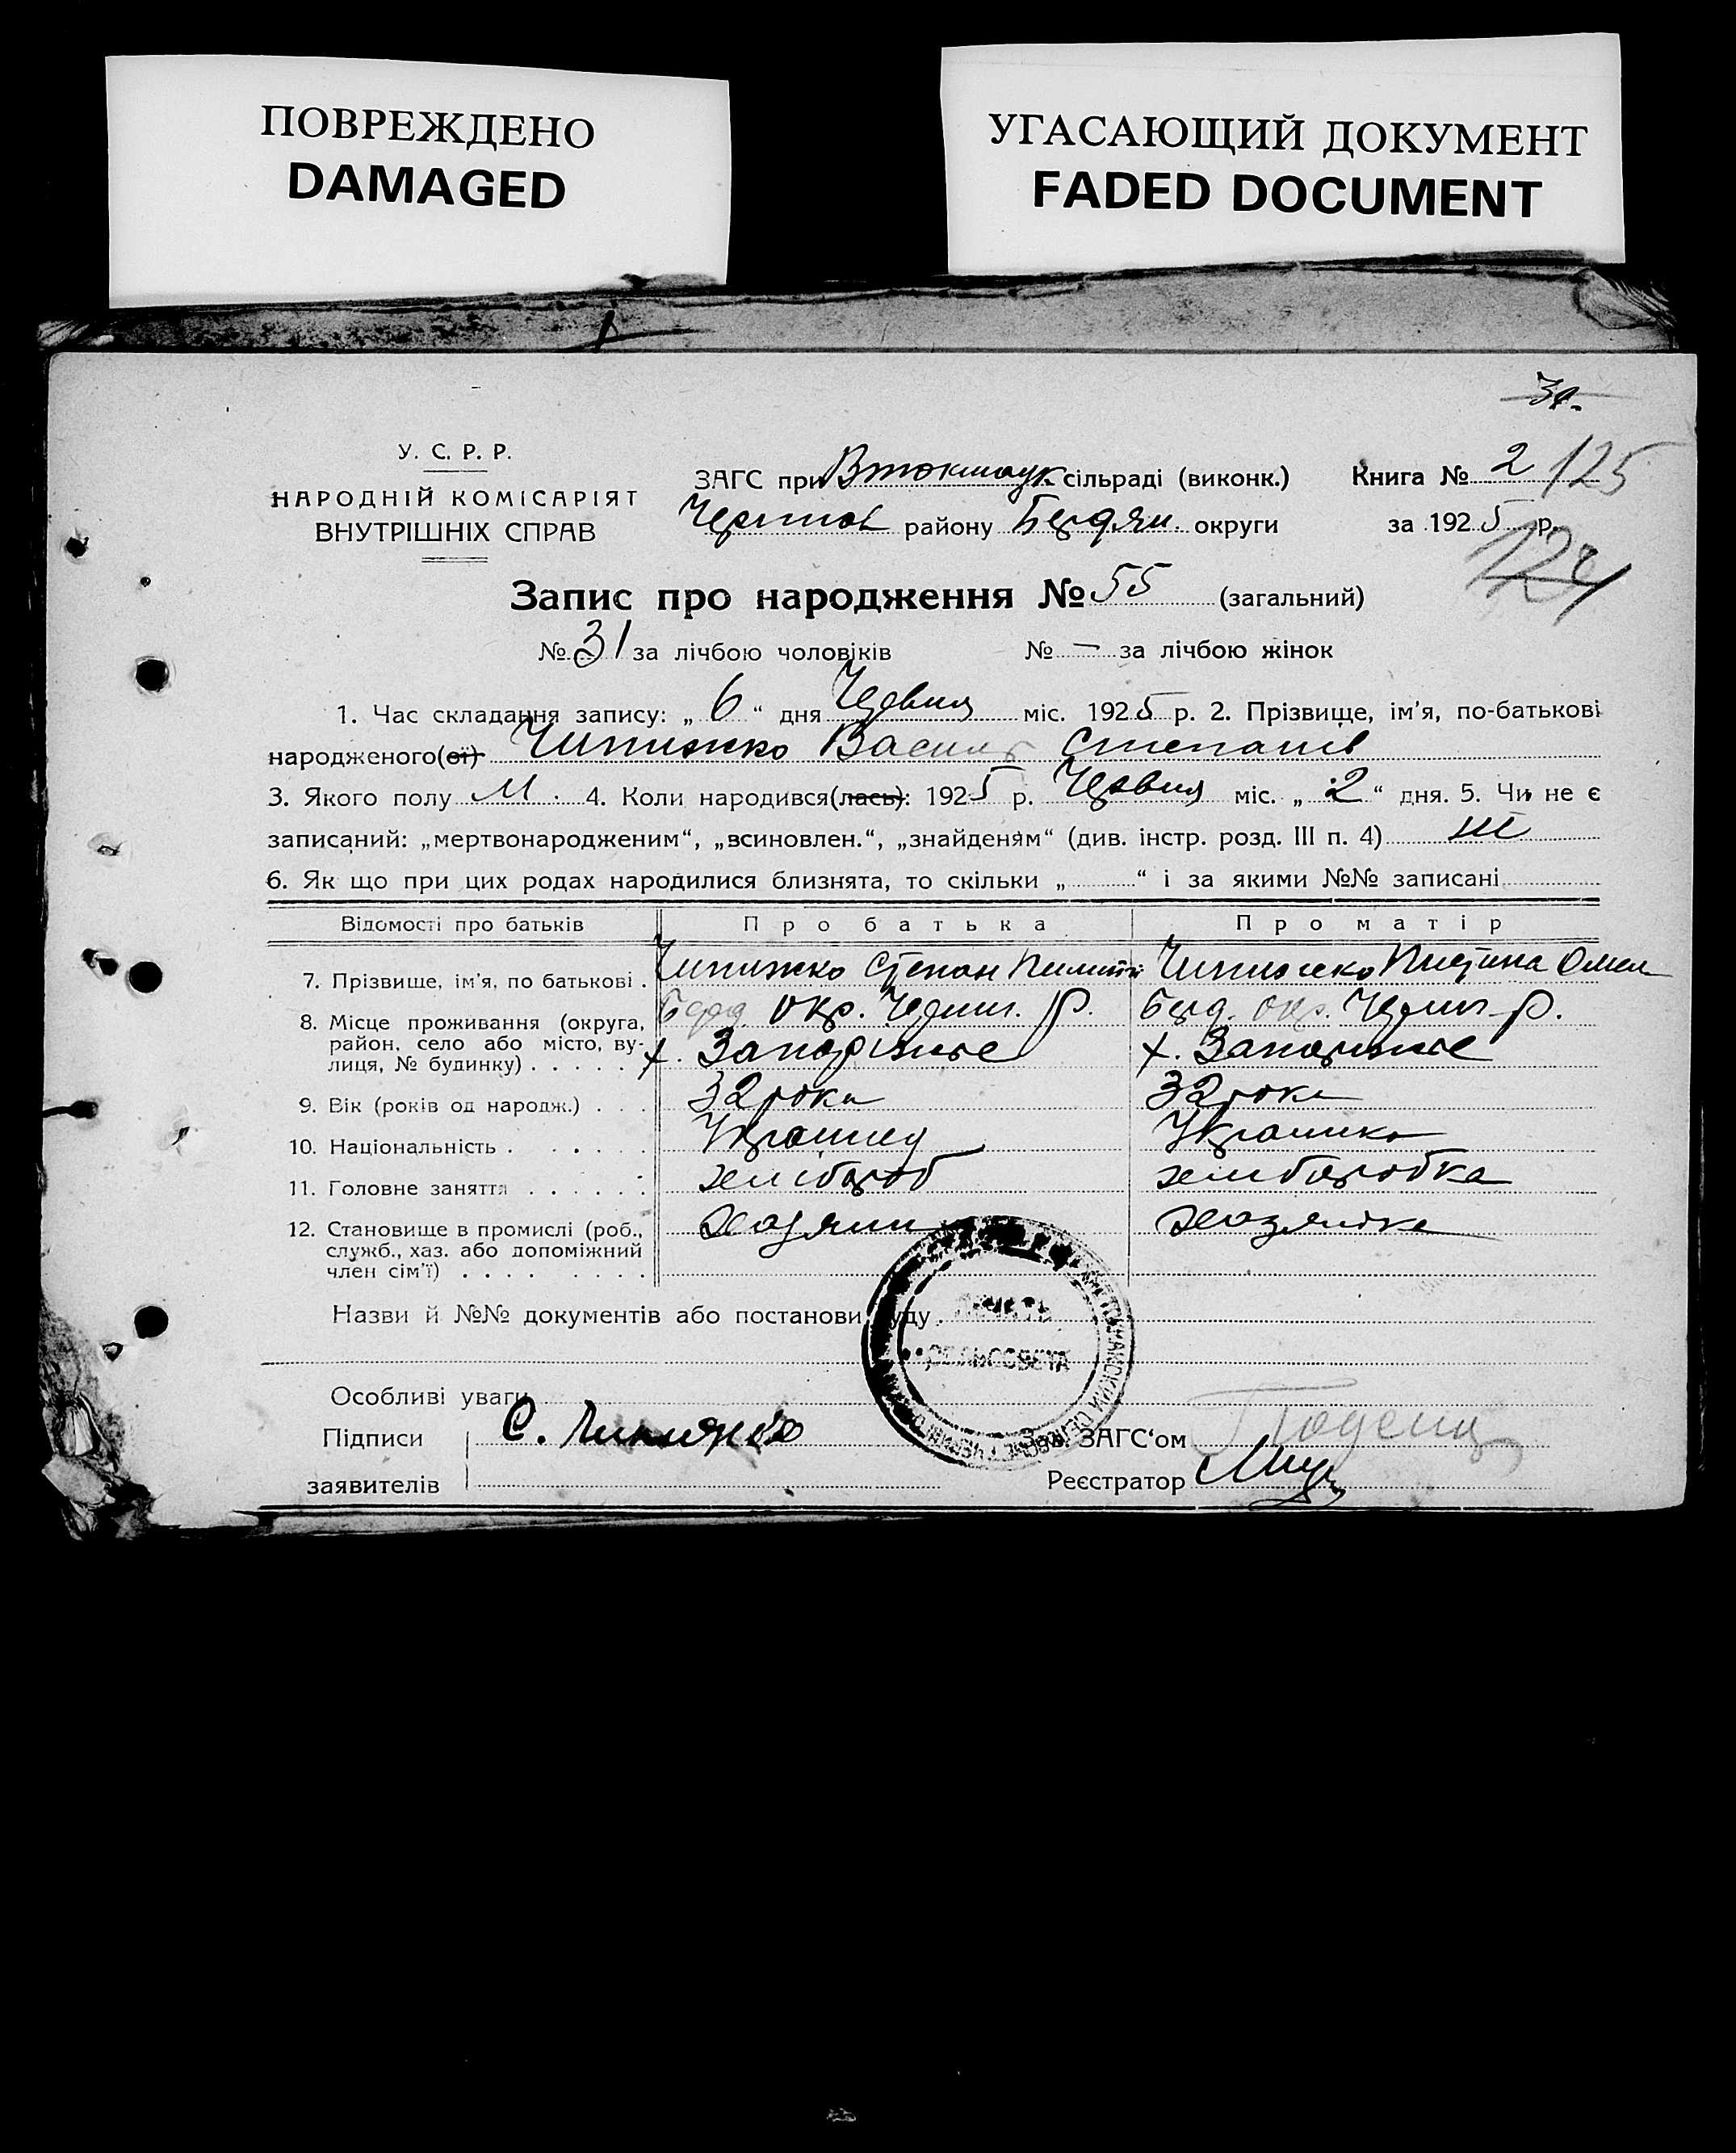 ПОВРЕЖДЕНО
DAMAGED
УГАСАЮЩИЙ ДОКУМЕНТ
FADED DOCUMENT
У. С. Р. Р.
НАРОДНІЙ КОМІСАРІЯТ
ВНУТРІШНІХ СПРАВ
ЗАГС при Втокмацк сільраді (виконк.) Книга № 2 125
району Бердян. округи за 1925 р.
124
Запис про народження № 55 (загальний)
№ 31 за лічбою чоловіків № — за лічбою жінок
1. Час складання запису: „ 6 “ дня Червня міс. 1925 р. 2. Прізвище, ім'я, по-батькові
народженого(ої) Чипижко Василь Степанів
3. Якого полу М. 4. Коли народився(лась): 1925 р. Червня міс. „ 2 “ дня. 5. Чи не є
записаний: „мертвонародженим“, „всиновлен.“, „знайденям“ (див. інстр. розд. III п. 4)
6. Як що при цих родах народилися близнята, то скільки „ “ і за якими №№ записані
Відомості про батьків Про батька Про матір
7. Прізвище, ім'я, по батькові . Чипижко Степан Чипижко Омел
8. Місце проживання (округа, район, село або місто, вулиця, № будинку) Берд. окр. Черниг. р. Берд. окр. Черниг. р.
х. Запоріжье х. Запоріжье
9. Вік (років од народж.) . . . 32 рока 32 рока
10. Національність . . . . . Українец Українка
11. Головне заняття . . . . . . хлібороб хліборобка
12. Становище в промислі (роб., служб., хаз. або допоміжний член сім'ї) хазяин хазяйка
Назви й №№ документів або постанови суду
ПЕЧАТЬ
СЕЛЬСОВЕТА
Особливі уваги
Підписи заявителів С.
Зав. ЗАГС'ом
Реєстратор